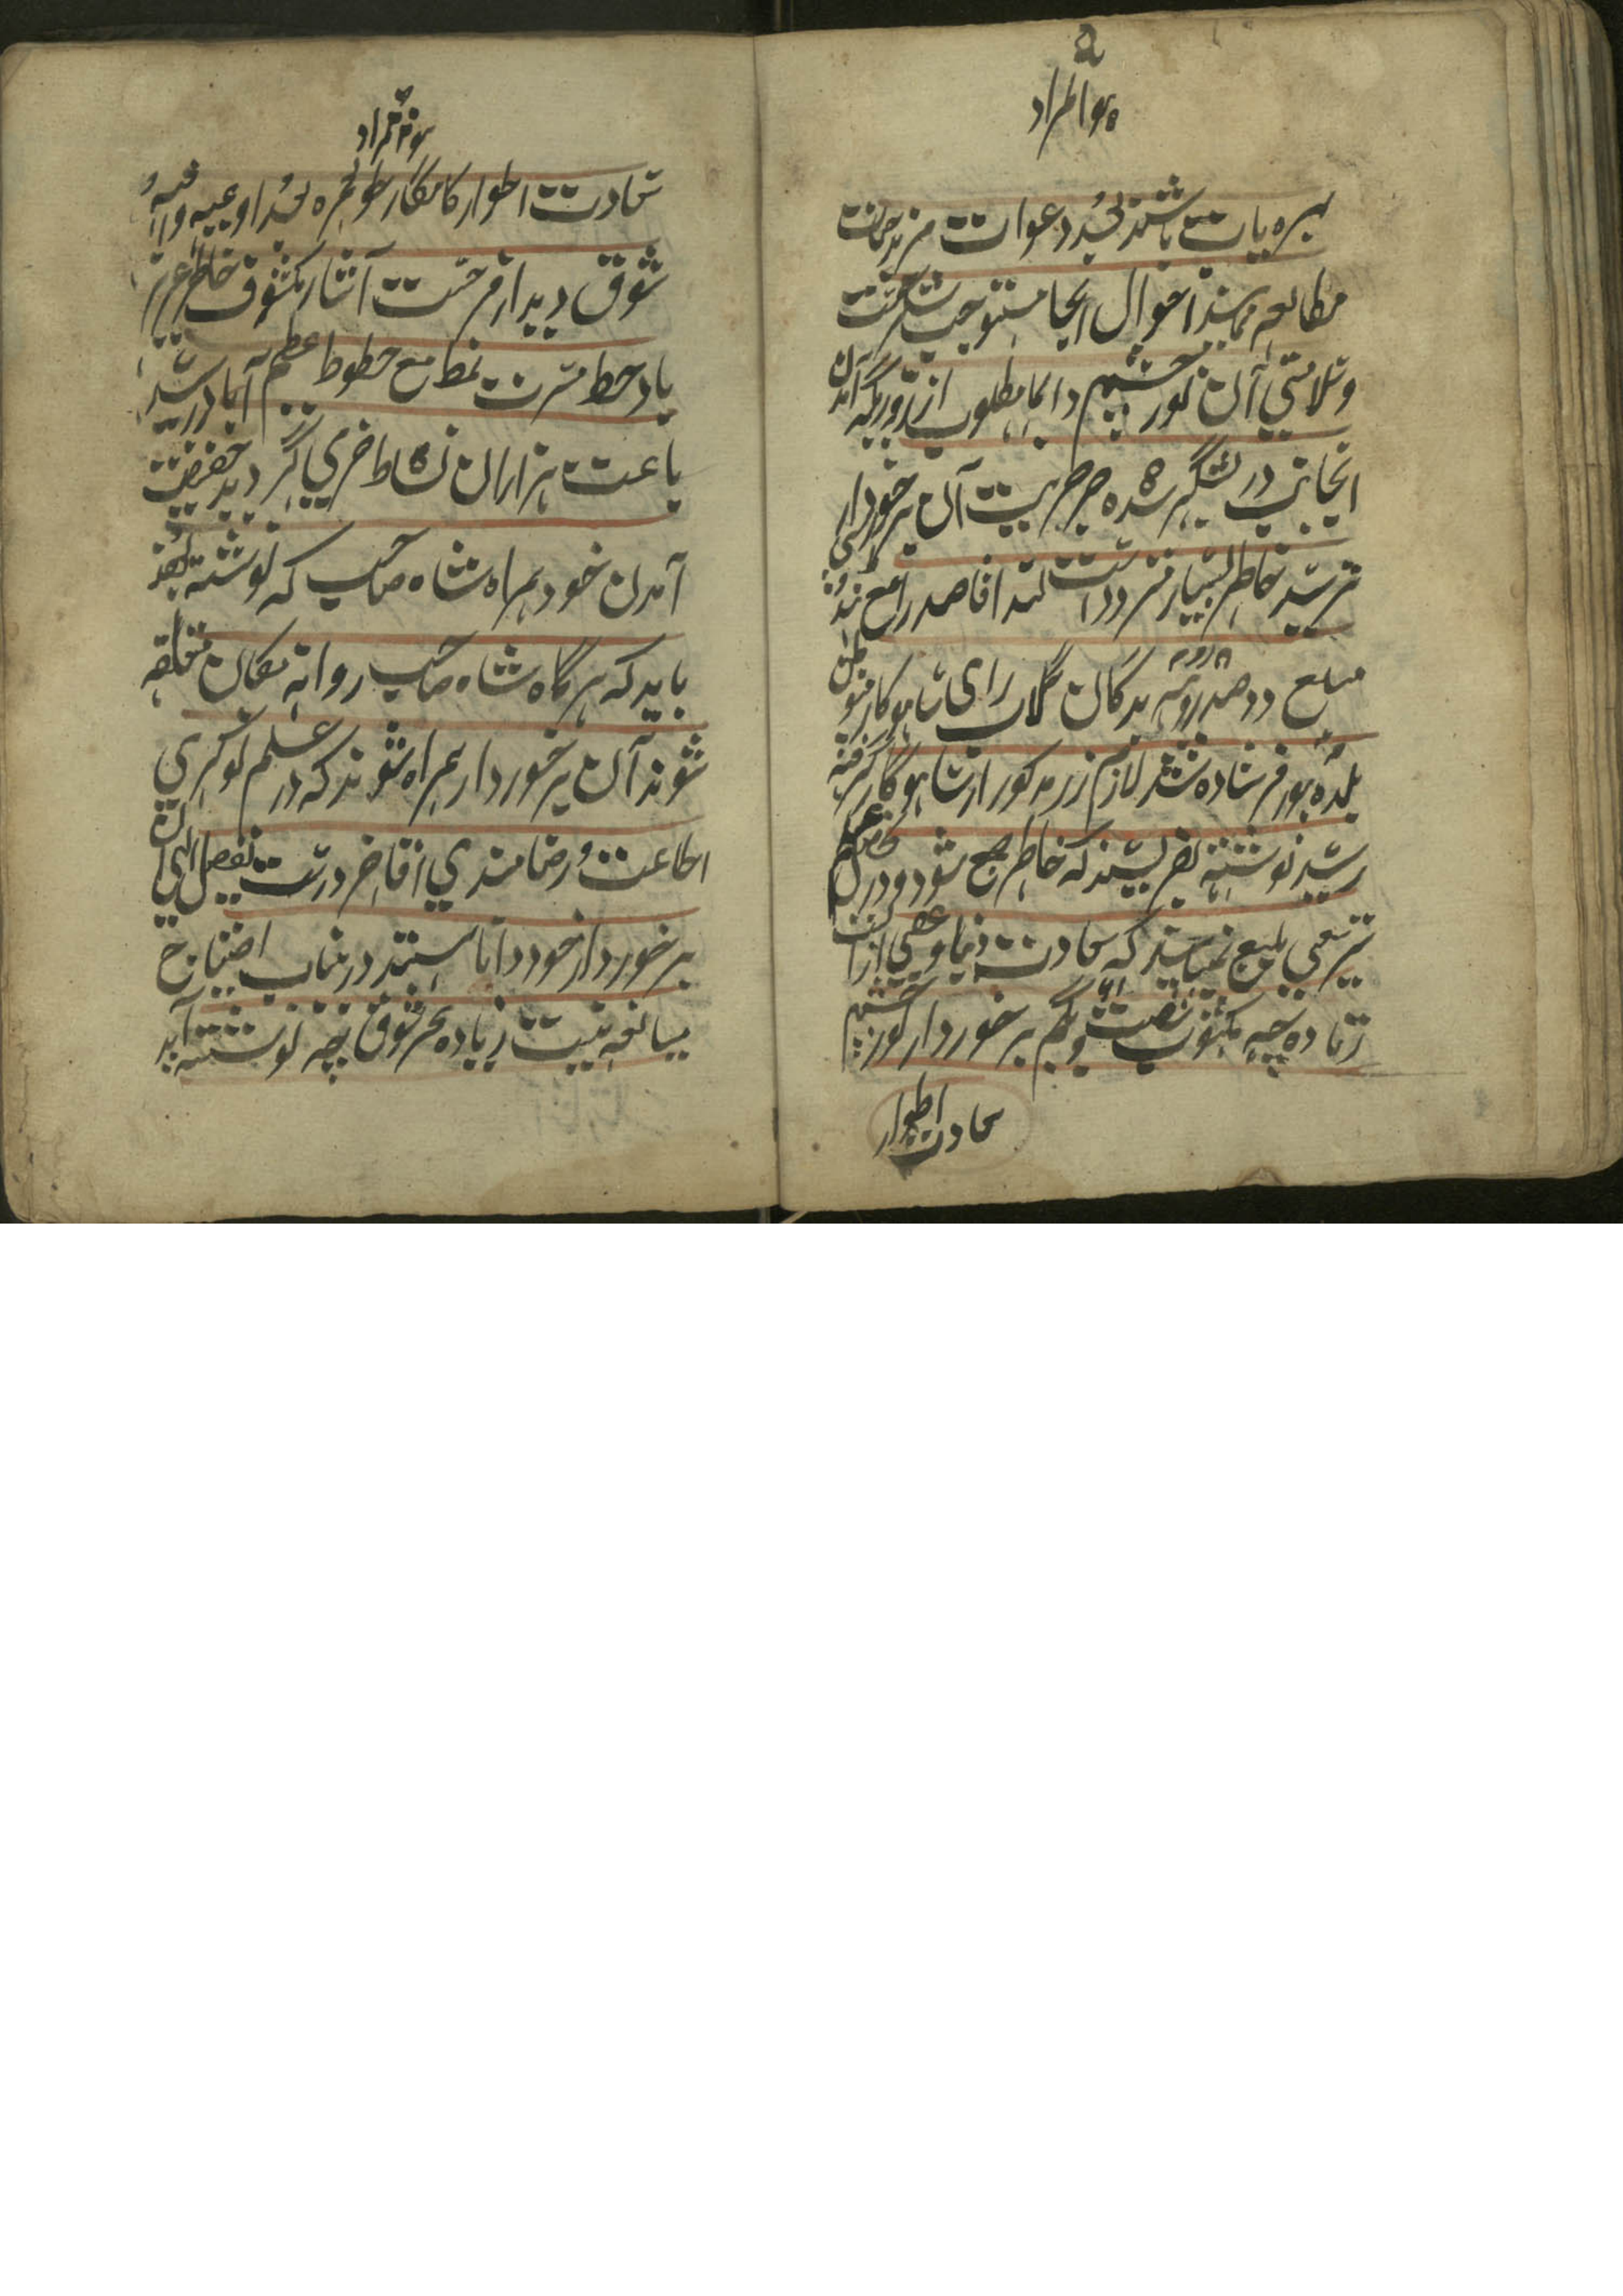 هو المراد
بهره یاب باشند بعد دعوات مزید حیات
مطالعه نمایند احوال اینجا مستوجب شکرست
وسلامتی آن نور چشم دایما مطلوب از روزیکه آمدن
اینجانب در لشکر شده خبر خیریت آن برخوردار
نرسید خاطر بسیار متردد است لهذا قاصد را مع
مبلغ دو صد روپیه بدکان گلاب رای ساهوکار
بلده فرستاده شد لازم زر مذکور از ساهوکار گرفته
رسید نوشته بفریسند که خاطر جمع شود و در
سعی بلیغ نمایند که سعادت دنیا و عقبی از آنست
زیاده چه مکتوب برخوردار نور چشم
سعادت اطوار
هو المراد
سعادت اطوار کامکار طولعمره بعد ادعیه وافیه
شوق دیدار فرحت آثار مکشوف خاطر عزیز
باد خط مسرت نمط مع خطوط عظیم آباد رسید
باعث هزاران نشاط خرمی گردید حقیقت
آمدن خود همراه شاه صاحب که نوشته بودند
باید که هرگاه شاه صاحب روانه مکان متعلقه
شوند آن برخوردار همراه شوند که در علم نوکری
اطاعت و رضامندی آقا ضرورست بفضل الهی آن
برخوردار خود دانا هستند درینباب احتیاج
مبالغه نیست زیاده بجز شوق چه نوشته آید